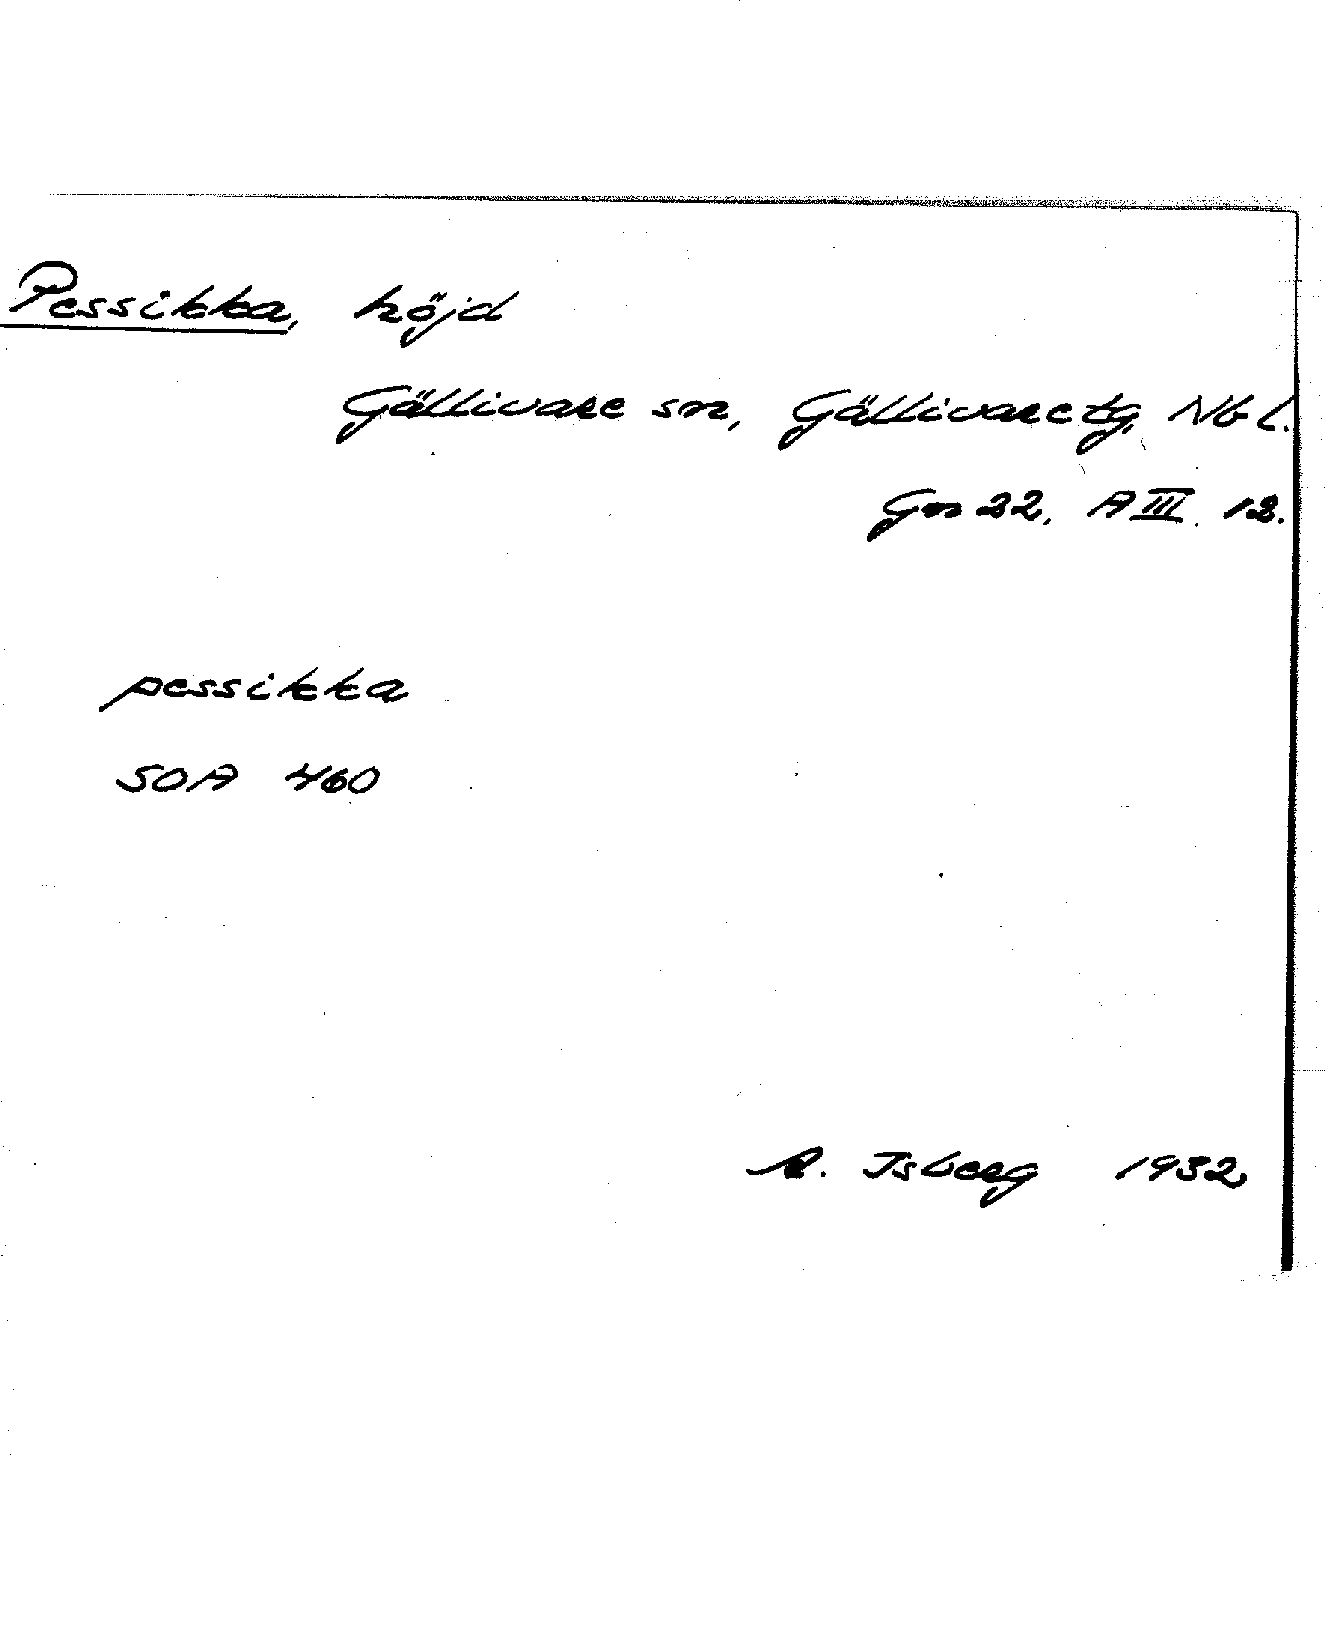 Pessikka, höjd
Gällivare sn, Gällivare tg, Nb l.
Gn 22, A III 12.
pessikka
SOA 460
A. Isberg 1932